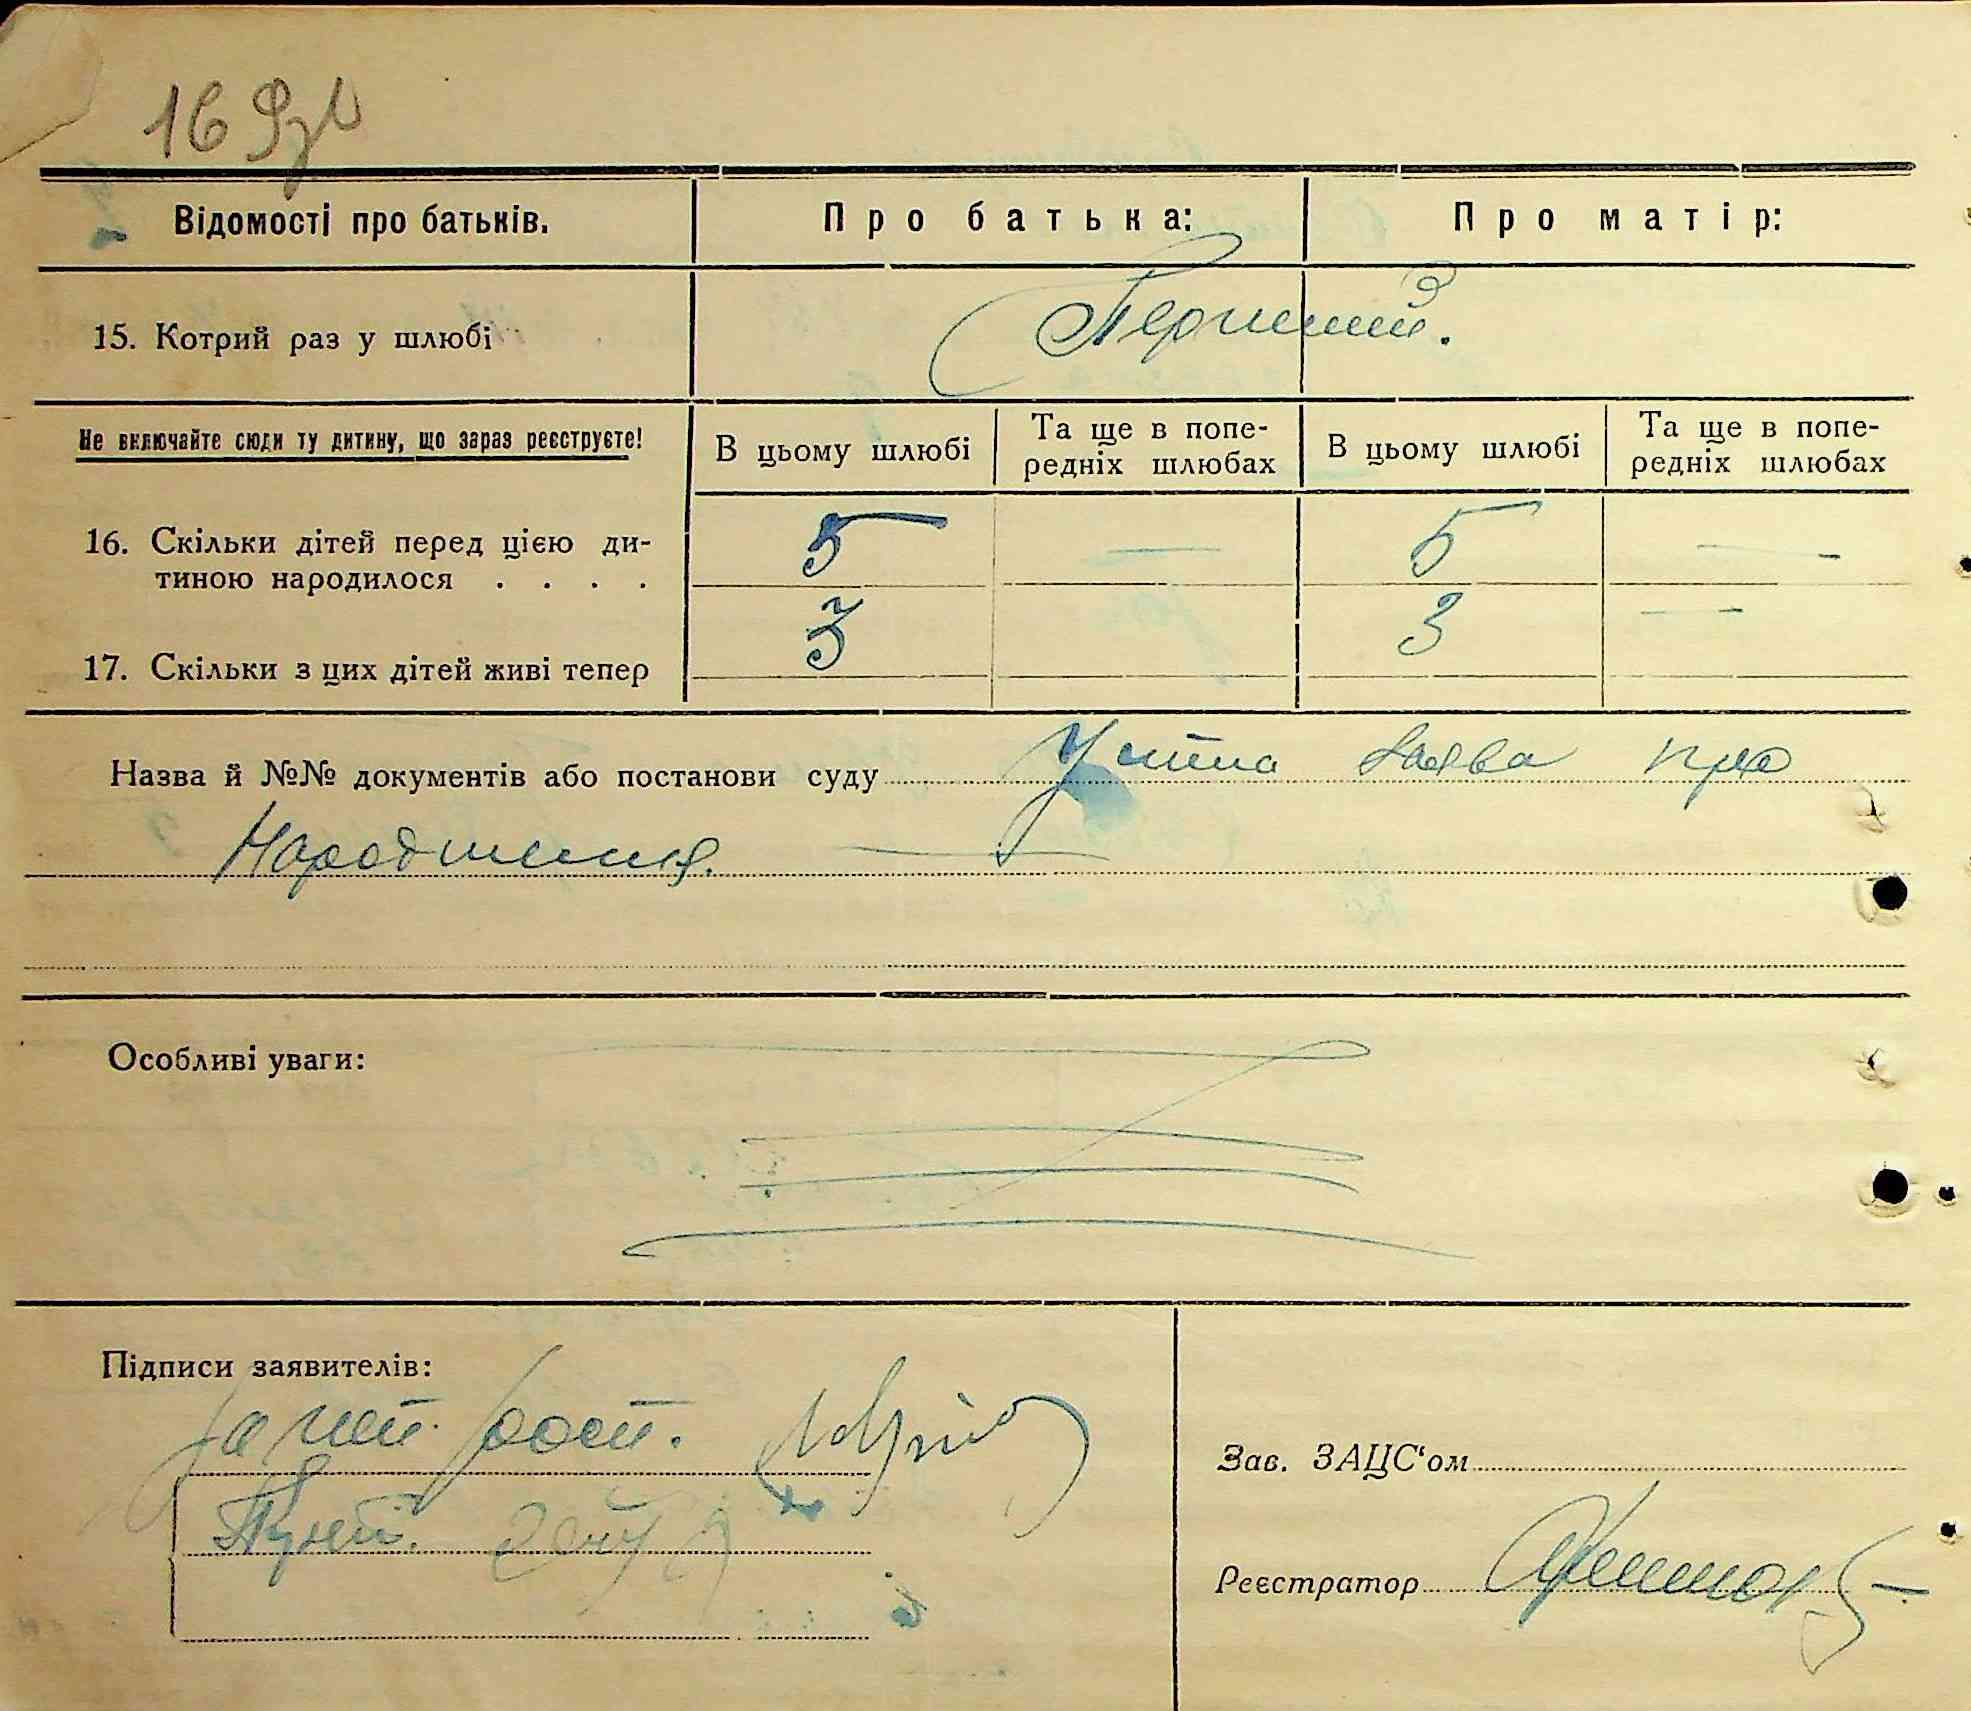 16
Відомості про батьків. Про батька: Про матір:
15. Котрий раз у шлюбі Перший.
Не включайте сюди ту дитину, що зараз реєструєте! В цьому шлюбі Та ще в попередніх шлюбах В цьому шлюбі Та ще в попередніх шлюбах
16. Скільки дітей перед цією ди-
тиною народилося . . . . 5 — 5 —
17. Скільки з цих дітей живі тепер 3 3 —
Назва й №№ документів або постанови суду Устна заява про
Народження.
Особливі уваги:
Підписи заявителів:
Зав. ЗАЦС'ом
Реєстратор